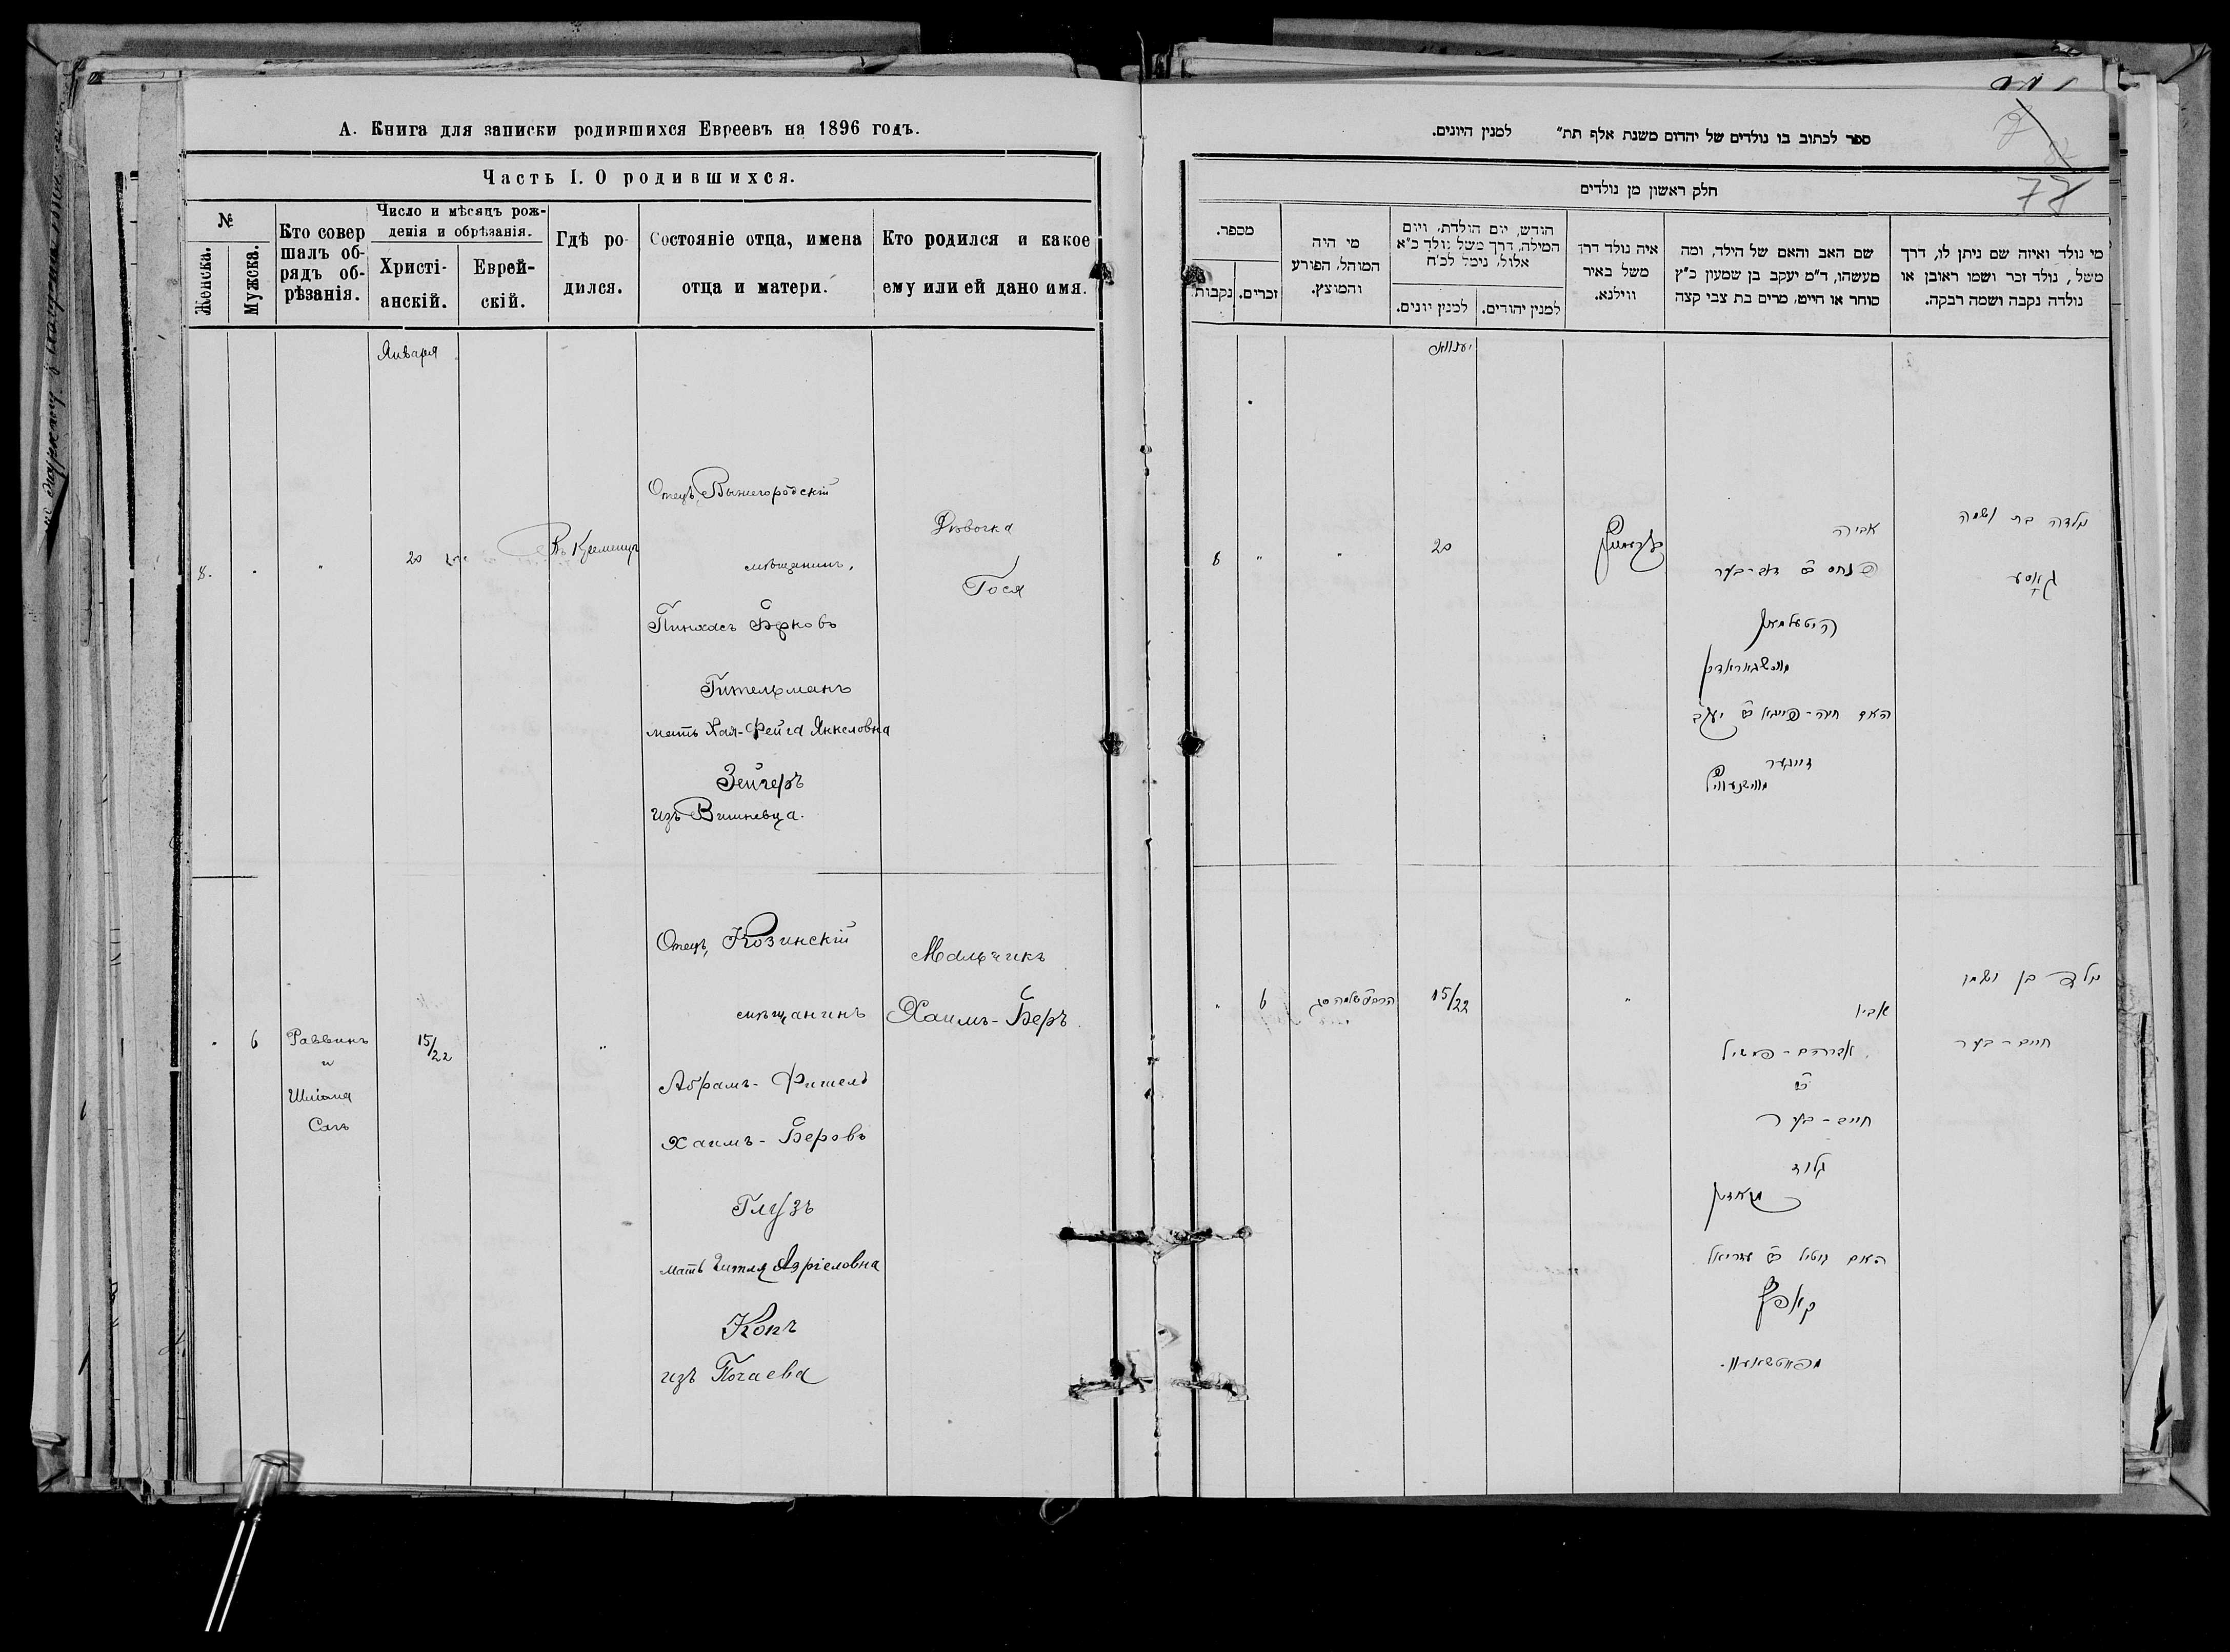 А. Книга для записки родившихся Евреевъ на 1896 годъ.
Часть I. О родившихся.
№
Женска.
Мужска.
Кто совер
шалъ об-
рядъ об-
рѣзанія.
Число и мѣсяцъ рож-
денія и обрѣзанія.
Христі-
анскій.
Еврей-
скій.
Гдѣ ро-
дился.
Состояніе отца, имена
отца и матери.
Кто родился и какое
ему или ей дано имя.
Января
8.
"
20
Въ Кременцѣ
Отецъ, Вышегородскій
мѣщанинъ,
Пинхасъ Берковъ
Гительманъ
мать Хая-Фейга Янкеловна
Зейгеръ
изъ Вишневца.
Дѣвочка
Гося
6
Раввинъ
и
Шліома
Сагъ
15/22
"
Отецъ, Козинскій
мѣщанинъ
Абрамъ-Фишель
Хаимъ-Беровъ
Глузъ
мать Гитля Азріеловна
Копъ
изъ Почаева
Мальчикъ
Хаимъ-Беръ.
ספר לכתוב בו נולדים של יהדום משנת אלף תת״ למנין היונים.
78
חלק ראשון מן נולדים
מספר.
נקבות.
זכרים.
מי היה
המוהל, הפורע
והמוצץ.
חודש, יום הולדת, ויום
המילה, דרך משל נולד כ״א
אלול, נימל לכ״ח
למנין יונים.
למנין יהודים.
איה נולד דרך
משל באיר
ווילנא.
שם האב והאם של הילד, ומה
מעשהו, ד״מ יעקב בן שמעון כ״ץ
סוחר או חייט, מרים בת צבי קצה
מי נולד ואיזה שם ניתן לו, דרך
משל, נולד זכר ושמו ראובן או
נולדה נקבה ושמה רבקה.
יענוואר
8
"
"
20
אביה
פנחס ב׳ דוב-בער
היטעלמאן
האם חיה-פייגא ב׳ יעקב
זייגער
נולדה בת ושמה
גאסע
"
6
15/22
"
אביו
אברהם-פישיל
ב׳
חיים-בער
גלוז
האם גיטיל ב׳ עזריאל
קאפ
נולד בן ושמו
חיים-בער